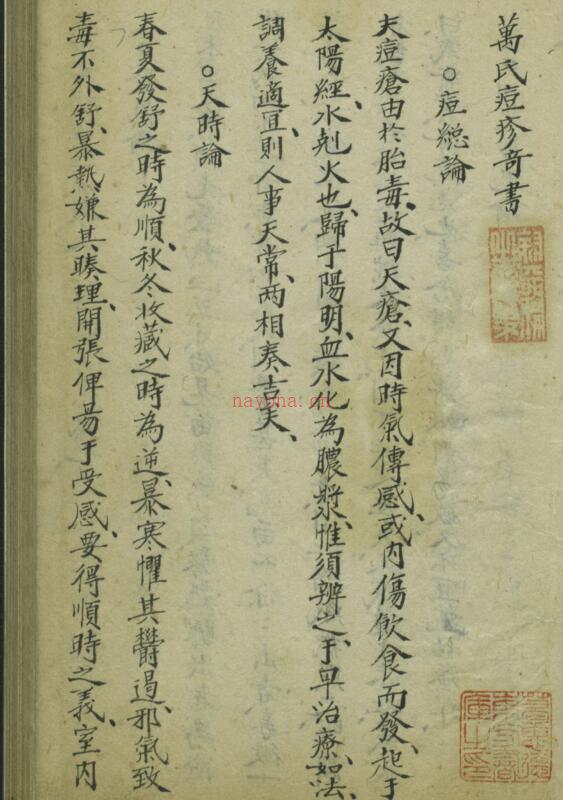 萬氏痘疹奇書
○痘總論
夫痘瘡由於胎毒、故曰天瘡、又因時氣傳感、或內傷飲食而發、起于
太陽經、水剋火也、歸于陽明、血水化為膿漿、惟須辨之、于早治療、如法、
調養適宜、則人事天常、兩相奏吉矣、
○天時論
春夏發舒之時為順、秋冬收藏之時為逆、暴寒懼其欝遏、邪氣致
毒不外舒、暴熱嫌其腠理、開張俾易于受感、要得順時之義、室內
nayona.cn